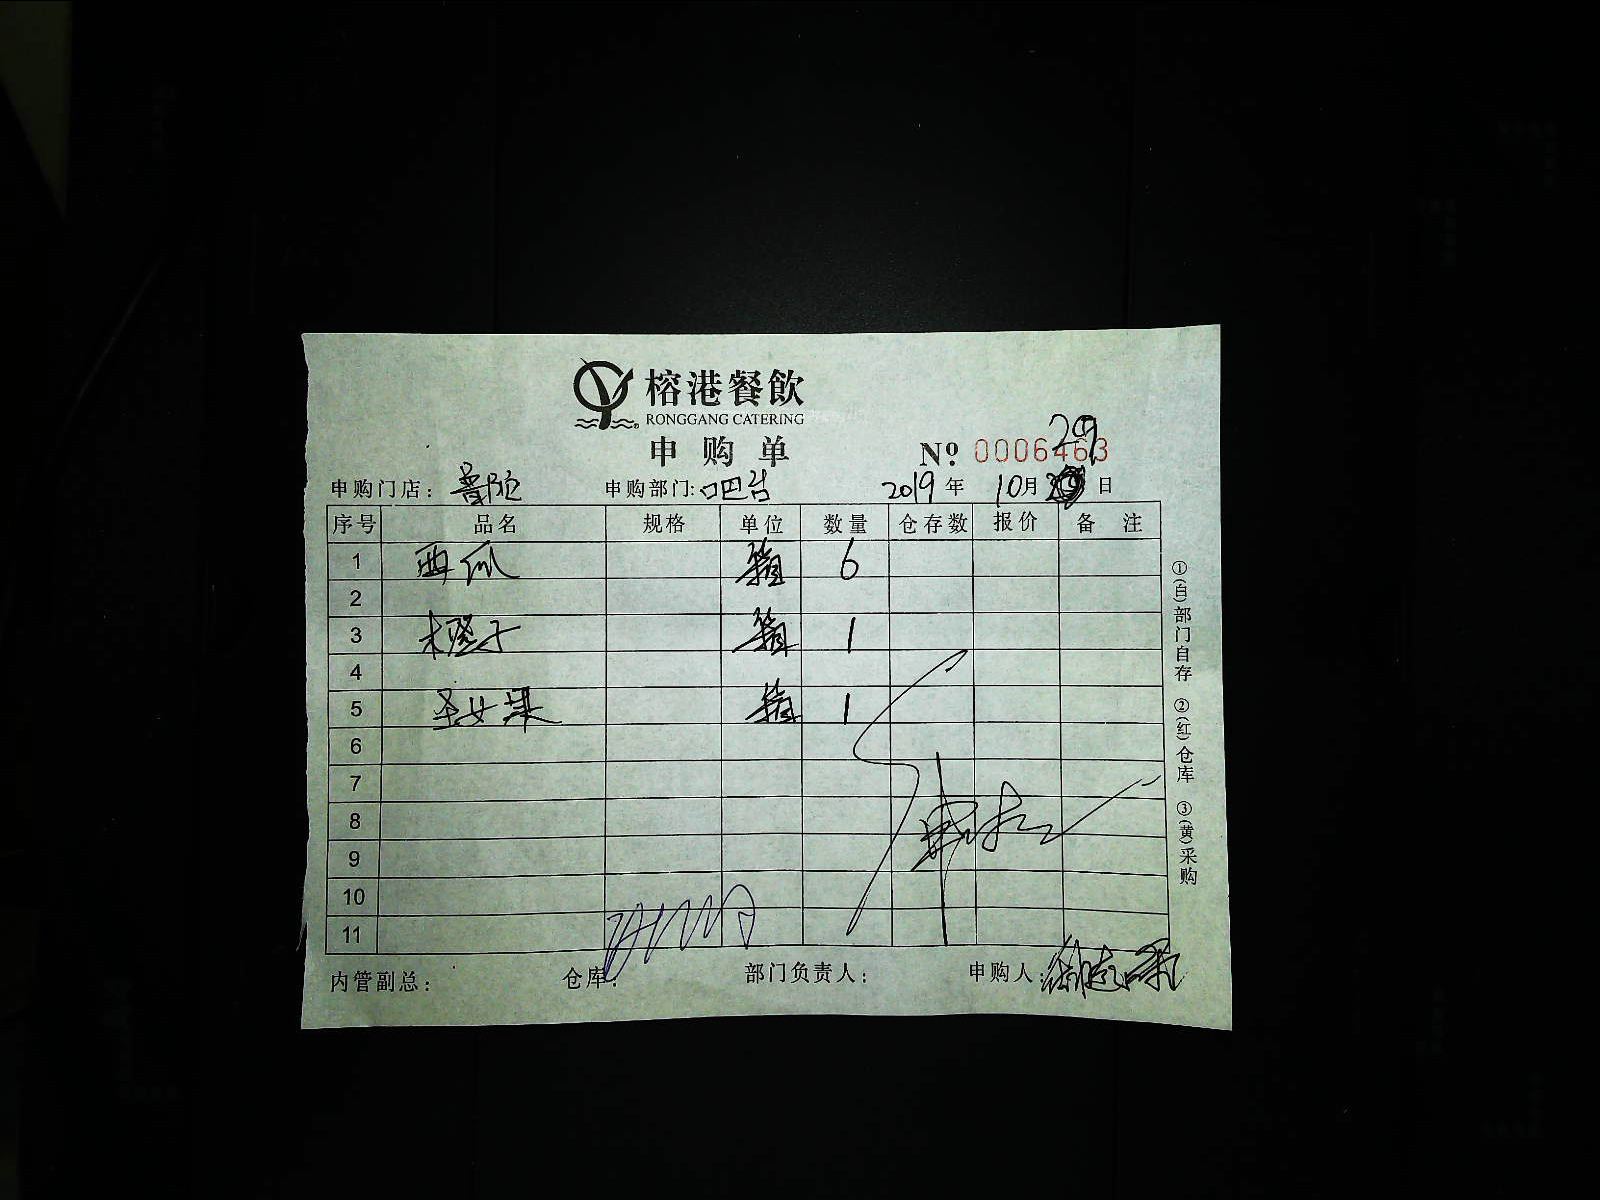 榕港餐飲
RONGGANG CATERING
申购单
29
Nº: 0006463
申购门店: 普陀 申购部门: 吧台 2019年 10月 日
序号 品名 规格 单位 数量 仓存数 报价 备注
1 西瓜 箱 6
2
3 橙子 箱 1
4
5 圣女果 箱 1
6
7
8
9
10
11
内管副总: 仓库: 部门负责人: 申购人:
①(白)部门自存 ②(红)仓库 ③(黄)采购